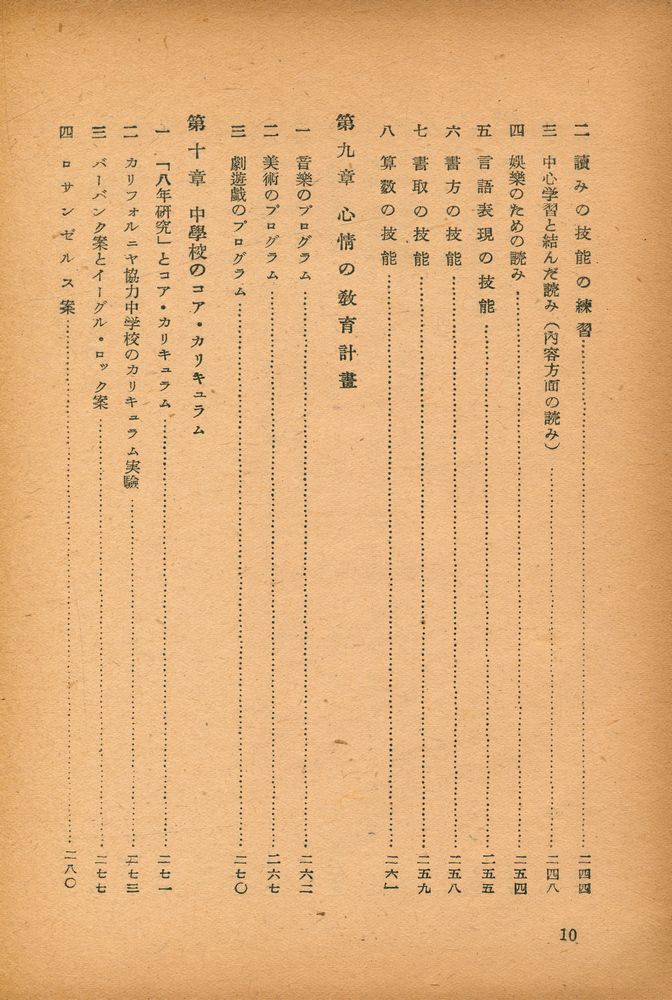 二 讀みの技能の練習……二四四
三 中心学習と結んだ読み（內容方面の読み）……二四八
四 娯樂のための読み……二五四
五 言語表現の技能……二五五
六 書方の技能……二五八
七 書取の技能……二五九
八 算数の技能……二六一
第九章 心情の敎育計畫
一 音樂のプログラム……二六二
二 美術のプログラム……二六七
三 劇遊戯のプログラム……二七〇
第十章 中學校のコア・カリキュラム
一 「八年研究」とコア・カリキュラム……二七一
二 カリフォルニヤ協力中学校のカリキュラム実験……二七三
三 バーバンク案とイーグル・ロック案……二七七
四 ロサンゼルス案……二八〇
10